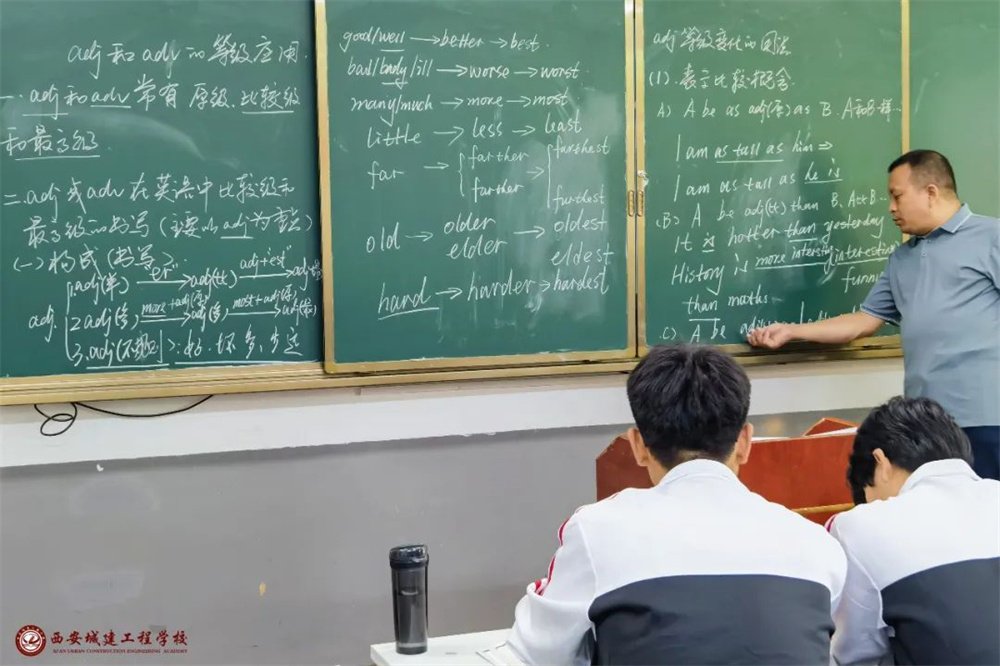 adj和adv的等级应用.
一.adj和adv常有原级、比较级
和最高级.
二.adj或adv在英语中比较级和
最高级的书写(主要以adj为重点)
(一)构成(书写):
"er" adj+"est"
1.adj(单)→adj(比)→adj(最)
adj.
more+adj(原) most+adj(原)
2 adj(多)→adj(比)→adj(最)
3.adj(不规则):好、坏、多、少、远
good/well→better→best.
bad/badly/ill→worse→worst.
many/much→more→most
little→less→least
far→farther farthest
further furthest
old→older→oldest
elder eldest
hard→harder→hardest
adj等级变化的用法
(1).表示比较概念
A) A be as adj(原) as B. A和B一样.
I am as tall as him⇒
I am as tall as he is
(B) A be adj(比) than B.
It is hotter than yesterday
History is more intersting
interesting
funny
than maths.
C). A be
西安城建工程学校
XI'AN URBAN CONSTRUCTION ENGINEERING ACADEMY